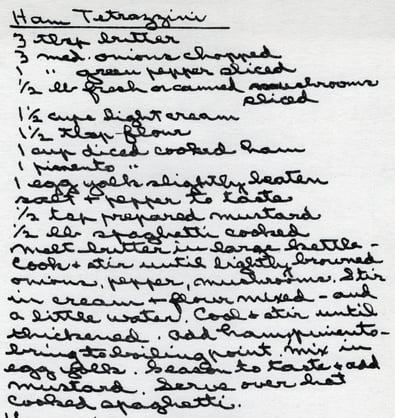 Ham Tetrazzini
3 tbsp butter
3 med. onions chopped
1 " green pepper sliced
1/2 lb fresh or canned mushrooms
sliced
1 1/2 cups light cream
1 1/2 tbsp flour
1 cup diced cooked ham
1 pimento "
1 egg yolk slightly beaten
salt + pepper to taste
1/2 tsp prepared mustard
1/2 lb spaghetti cooked
Melt butter in large kettle -
Cook + stir until lightly browned
onions, pepper, mushrooms. Stir
in cream + flour mixed - and
a little water. Cook + stir until
thickened. Add ham, pimento -
bring to boiling point. Mix in
egg yolk. Season to taste + add
mustard. Serve over hot
cooked spaghetti.